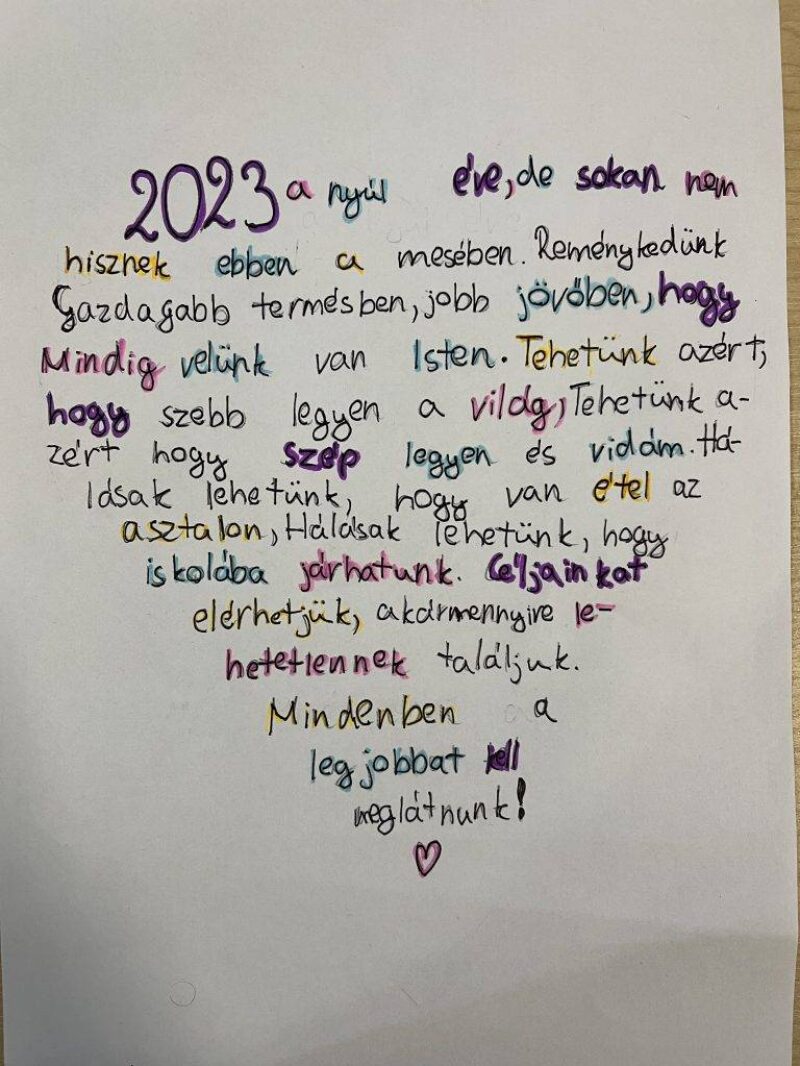 2023 a nyúl éve, de sokan nem
hisznek ebben a mesében. Reménykedünk
Gazdagabb termésben, jobb jövőben, hogy
Mindig velünk van Isten. Tehetünk azért,
hogy szebb legyen a világ, Tehetünk a-
zért hogy szép legyen és vidám. Há-
lásak lehetünk, hogy van étel az
asztalon, Hálásak lehetünk, hogy
iskolába járhatunk. Céljainkat
elérhetjük, akármennyire le-
hetetlennek találjuk.
Mindenben a
legjobbat kell
meglátnunk!